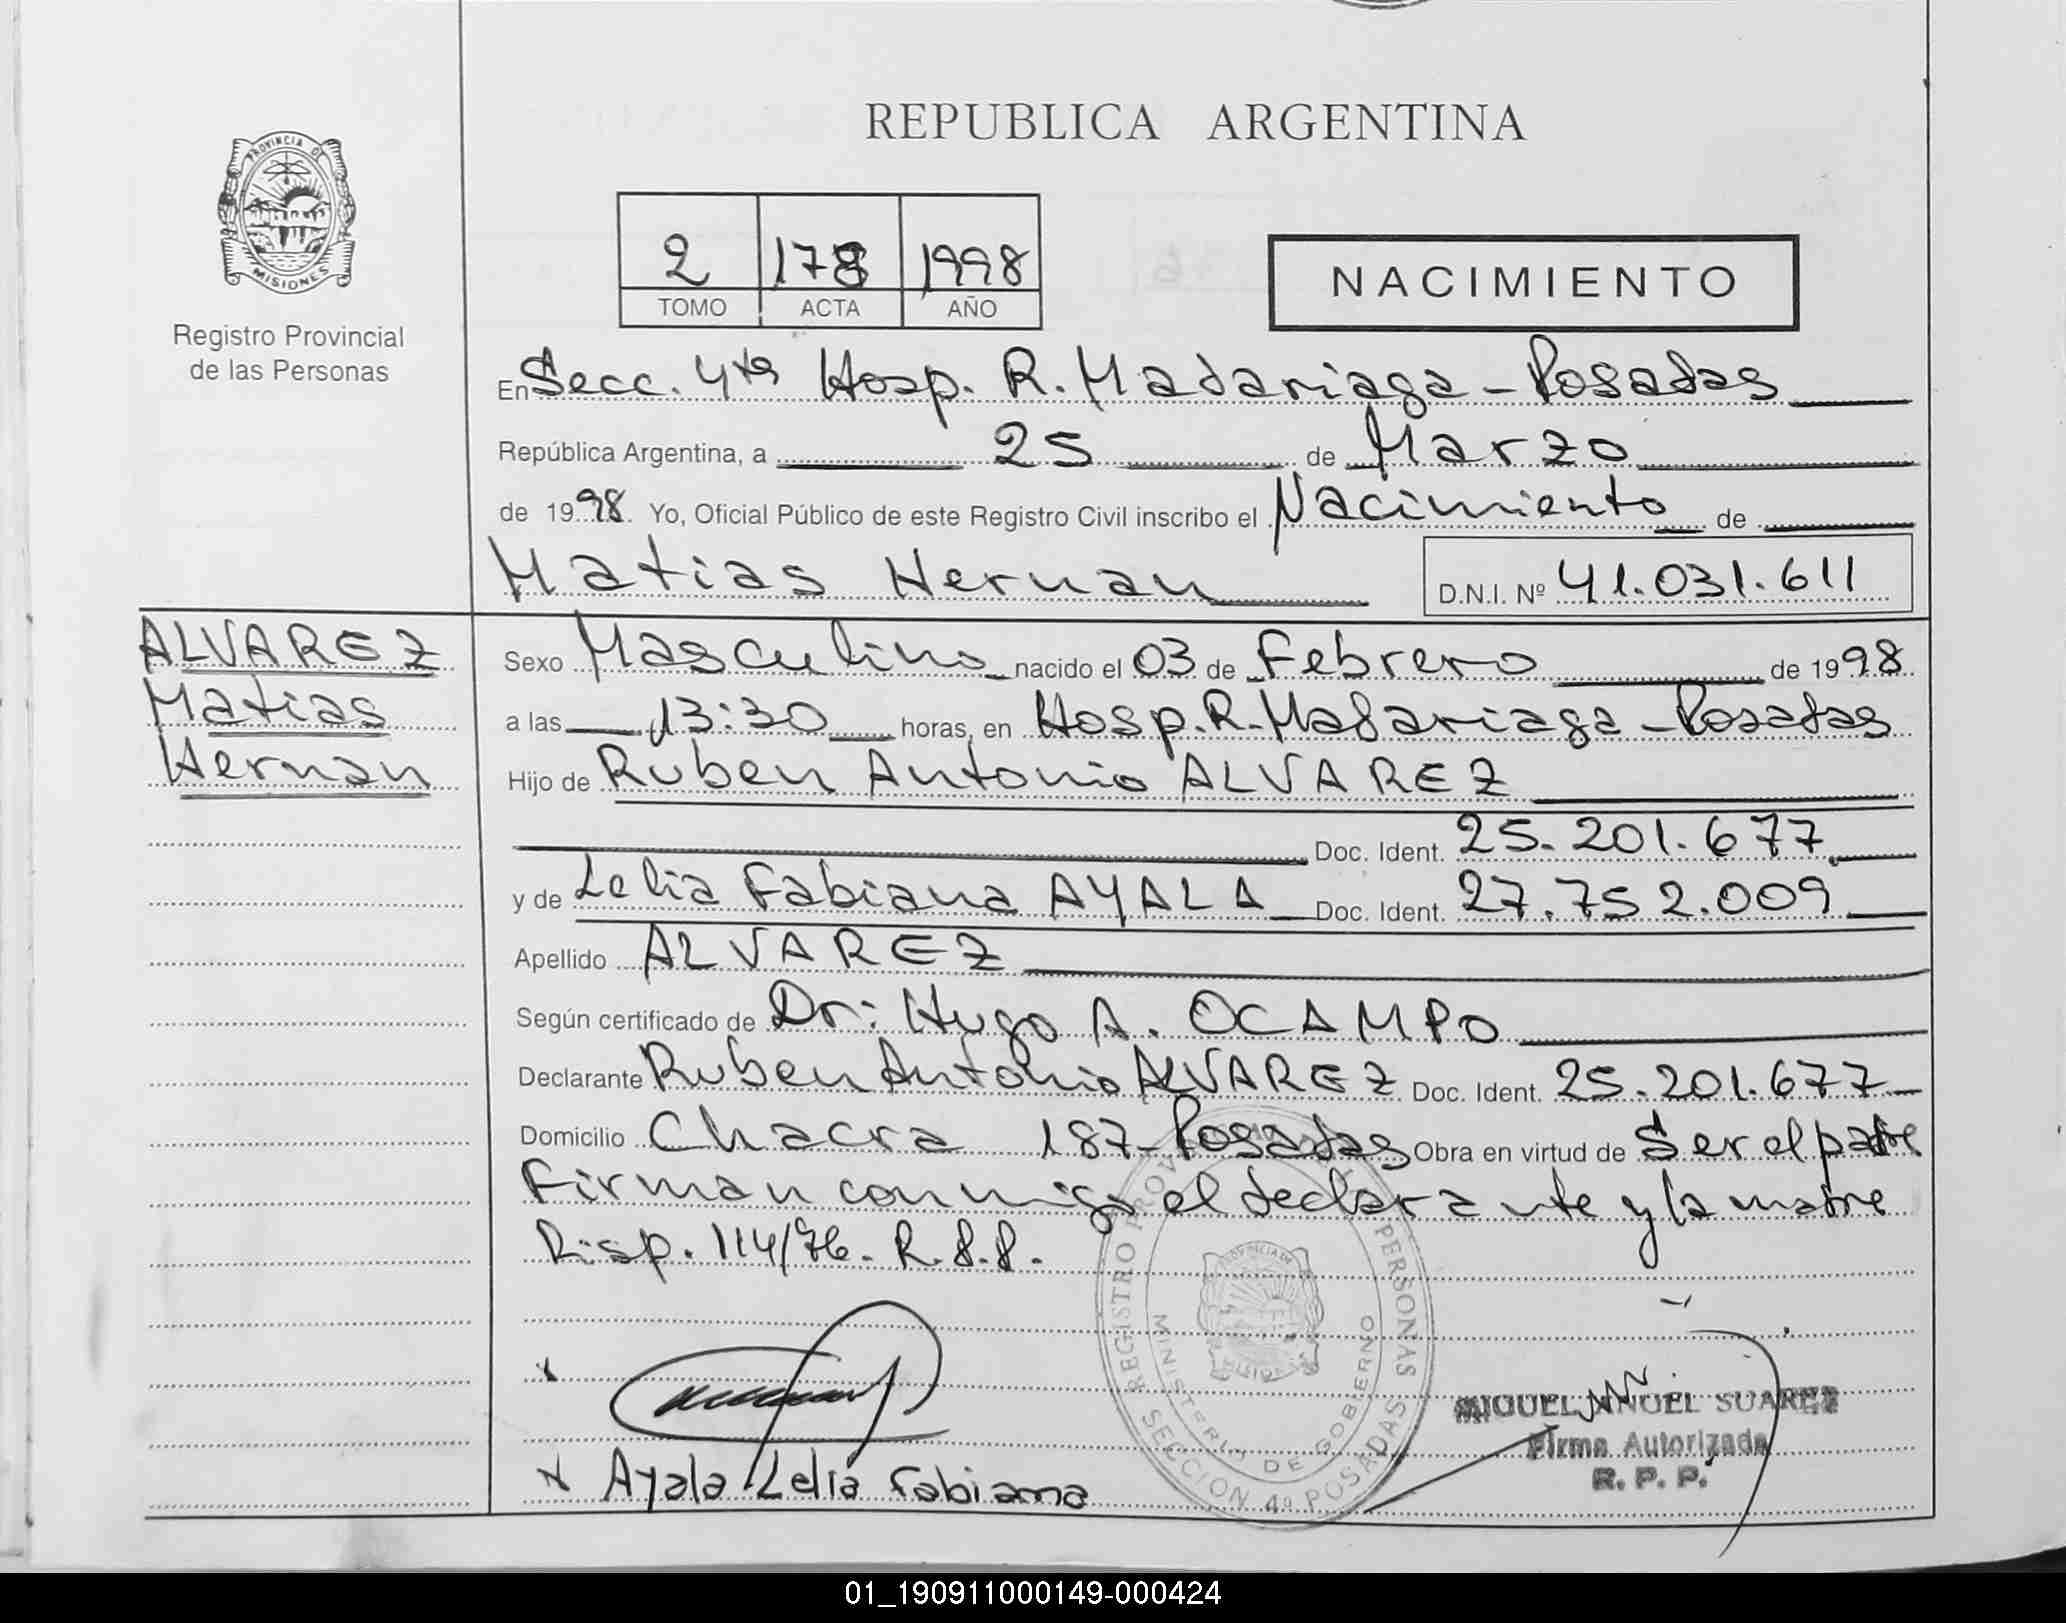 REPUBLICA ARGENTINA
PROVINCIA DE
MISIONES
Registro Provincial
de las Personas
2 178 1998
TOMO ACTA AÑO
NACIMIENTO
En Secc. 4ta Hosp. R. Madariaga - Posadas
República Argentina, a 25 de Marzo
de 1998. Yo, Oficial Público de este Registro Civil inscribo el Nacimiento de
Matias Hernan D.N.I. Nº 41.031.611
ALVAREZ
Matias
Hernan
Sexo Masculino nacido el 03 de Febrero de 1998.
a las 13:30 horas, en Hosp. R. Madariaga - Posadas
Hijo de Ruben Antonio ALVAREZ
Doc. Ident. 25.201.677
y de Lelia Fabiana AYALA Doc. Ident. 27.752.009
Apellido ALVAREZ
Según certificado de Dr: Hugo A. OCAMPO
Declarante Ruben Antonio ALVAREZ Doc. Ident. 25.201.677
Domicilio Chacra 187 - Posadas Obra en virtud de Ser el padre
Firman conmigo el declarante y la madre
Disp. 114/76.
REGISTRO PROVINCIAL PERSONAS
MINISTERIO DE GOBERNO
SECCION 4º POSADAS
MIGUEL ANGEL SUAREZ
Firma Autorizada
R. P. P.
Ayala Lelia Fabiana
01_190911000149-000424